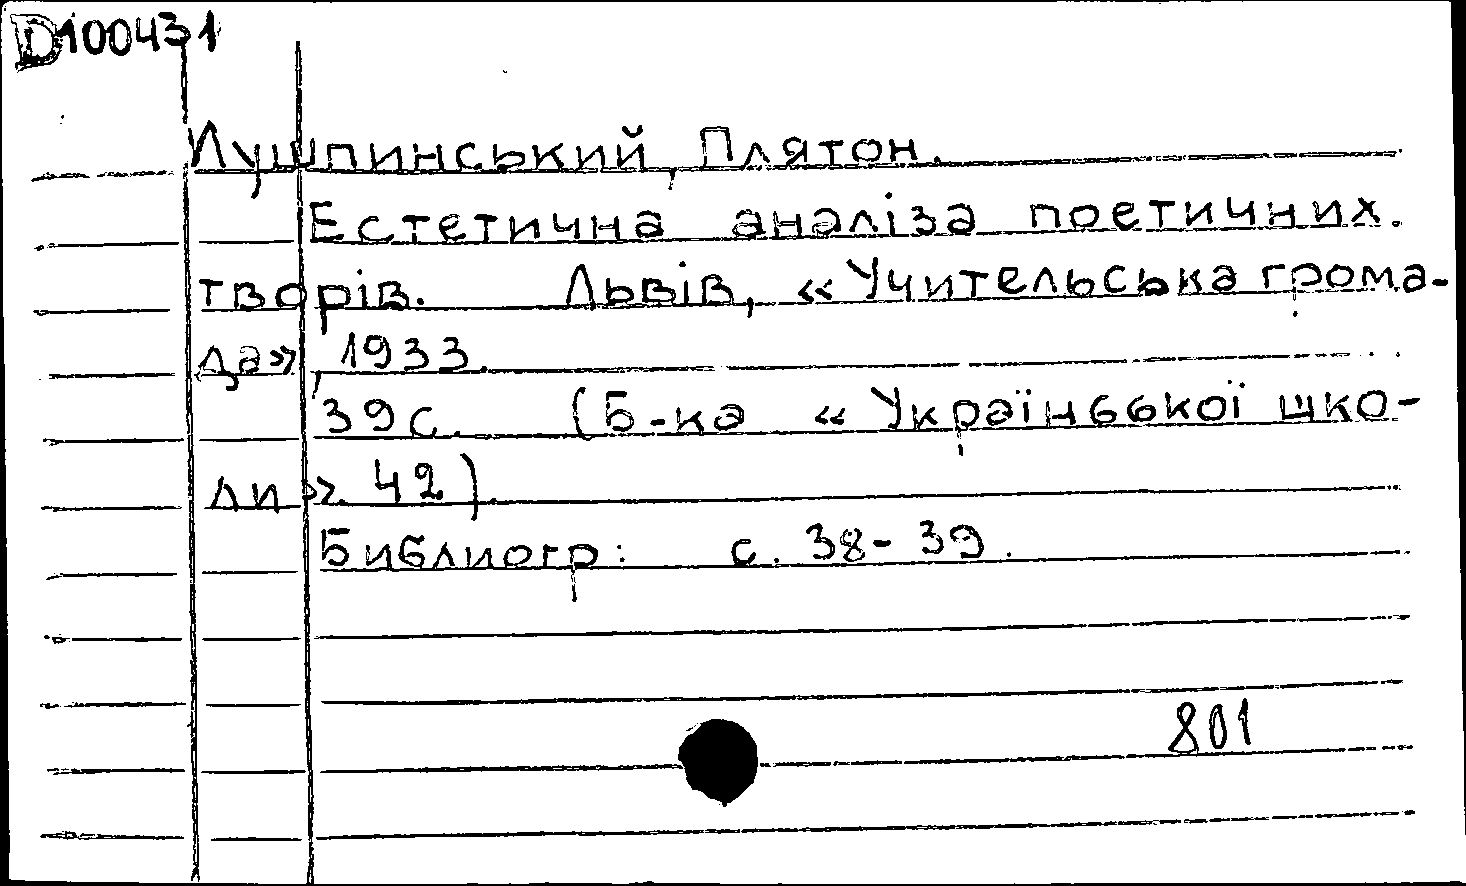 D100431
Лушпинський, Плятон.
Естетична аналіза поетичних.
творів. Львів, «Учительська грома-
да», 1933.
39 с. (Б-ка «Українбької шко-
ли». 42).
Библиогр: с. 38-39.
801